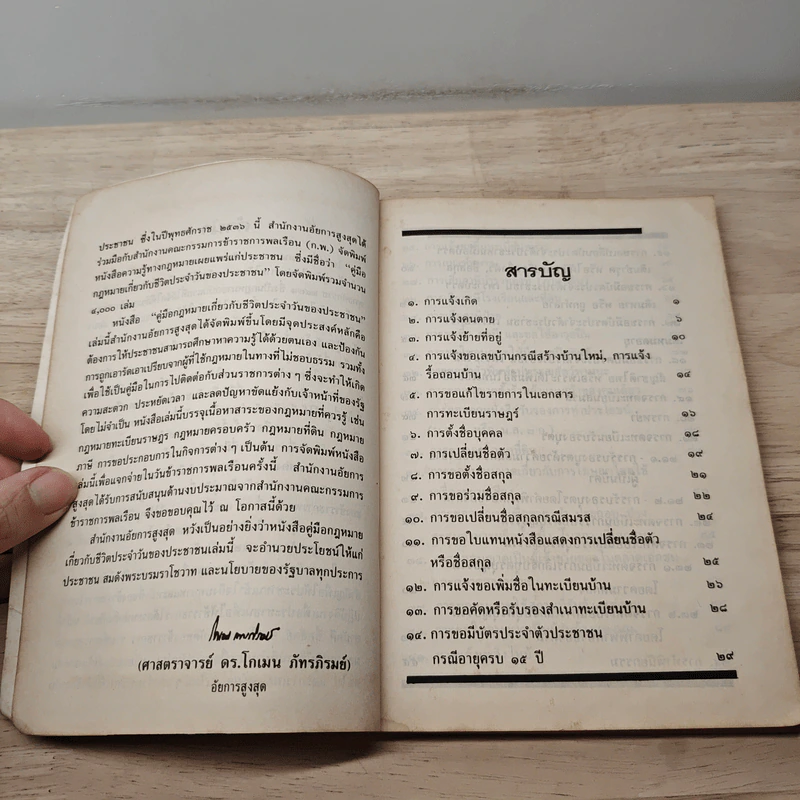 ประชาชน ซึ่งในปีพุทธศักราช ๒๕๓๖ นี้ สำนักงานอัยการสูงสุดได้
ร่วมมือกับสำนักงานคณะกรรมการข้าราชการพลเรือน (ก.พ.) จัดพิมพ์
หนังสือความรู้ทางกฎหมายเผยแพร่แก่ประชาชน ซึ่งมีชื่อว่า "คู่มือ
กฎหมายเกี่ยวกับชีวิตประจำวันของประชาชน" โดยจัดพิมพ์รวมจำนวน
๔,๐๐๐ เล่ม
หนังสือ "คู่มือกฎหมายเกี่ยวกับชีวิตประจำวันของประชาชน"
เล่มนี้สำนักงานอัยการสูงสุดได้จัดพิมพ์ขึ้นโดยมีจุดประสงค์หลักคือ
ต้องการให้ประชาชนสามารถศึกษาหาความรู้ได้ด้วยตนเอง และป้องกัน
การถูกเอารัดเอาเปรียบจากผู้ที่ใช้กฎหมายในทางที่ไม่ชอบธรรม รวมทั้ง
เพื่อใช้เป็นคู่มือในการไปติดต่อกับส่วนราชการต่าง ๆ ซึ่งจะทำให้เกิด
ความสะดวก ประหยัดเวลา และลดปัญหาขัดแย้งกับเจ้าหน้าที่ของรัฐ
โดยไม่จำเป็น หนังสือเล่มนี้บรรจุเนื้อหาสาระของกฎหมายที่ควรรู้ เช่น
กฎหมายทะเบียนราษฎร กฎหมายครอบครัว กฎหมายที่ดิน กฎหมาย
ภาษี การขอประกอบการในกิจการต่าง ๆ เป็นต้น การจัดพิมพ์หนังสือ
เล่มนี้เพื่อแจกจ่ายในวันข้าราชการพลเรือนครั้งนี้ สำนักงานอัยการ
สูงสุดได้รับการสนับสนุนด้านงบประมาณจากสำนักงานคณะกรรมการ
ข้าราชการพลเรือน จึงขอขอบคุณไว้ ณ โอกาสนี้ด้วย
สำนักงานอัยการสูงสุด หวังเป็นอย่างยิ่งว่าหนังสือคู่มือกฎหมาย
เกี่ยวกับชีวิตประจำวันของประชาชนเล่มนี้ จะอำนวยประโยชน์ให้แก่
ประชาชน สมดังพระบรมราโชวาท และนโยบายของรัฐบาลทุกประการ
(ศาสตราจารย์ ดร.โกเมน ภัทรภิรมย์)
อัยการสูงสุด
สารบัญ
๑. การแจ้งเกิด ๑
๒. การแจ้งคนตาย ๖
๓. การแจ้งย้ายที่อยู่ ๑๐
๔. การแจ้งขอเลขบ้านกรณีสร้างบ้านใหม่, การแจ้ง
รื้อถอนบ้าน ๑๔
๕. การขอแก้ไขรายการในเอกสาร
การทะเบียนราษฎร์ ๑๖
๖. การตั้งชื่อบุคคล ๑๘
๗. การเปลี่ยนชื่อตัว ๑๙
๘. การขอตั้งชื่อสกุล ๒๑
๙. การขอร่วมชื่อสกุล ๒๒
๑๐. การขอเปลี่ยนชื่อสกุลกรณีสมรส ๒๔
๑๑. การขอใบแทนหนังสือแสดงการเปลี่ยนชื่อตัว
หรือชื่อสกุล ๒๕
๑๒. การแจ้งขอเพิ่มชื่อในทะเบียนบ้าน ๒๖
๑๓. การขอคัดหรือรับรองสำเนาทะเบียนบ้าน ๒๘
๑๔. การขอมีบัตรประจำตัวประชาชน
กรณีอายุครบ ๑๕ ปี ๒๙